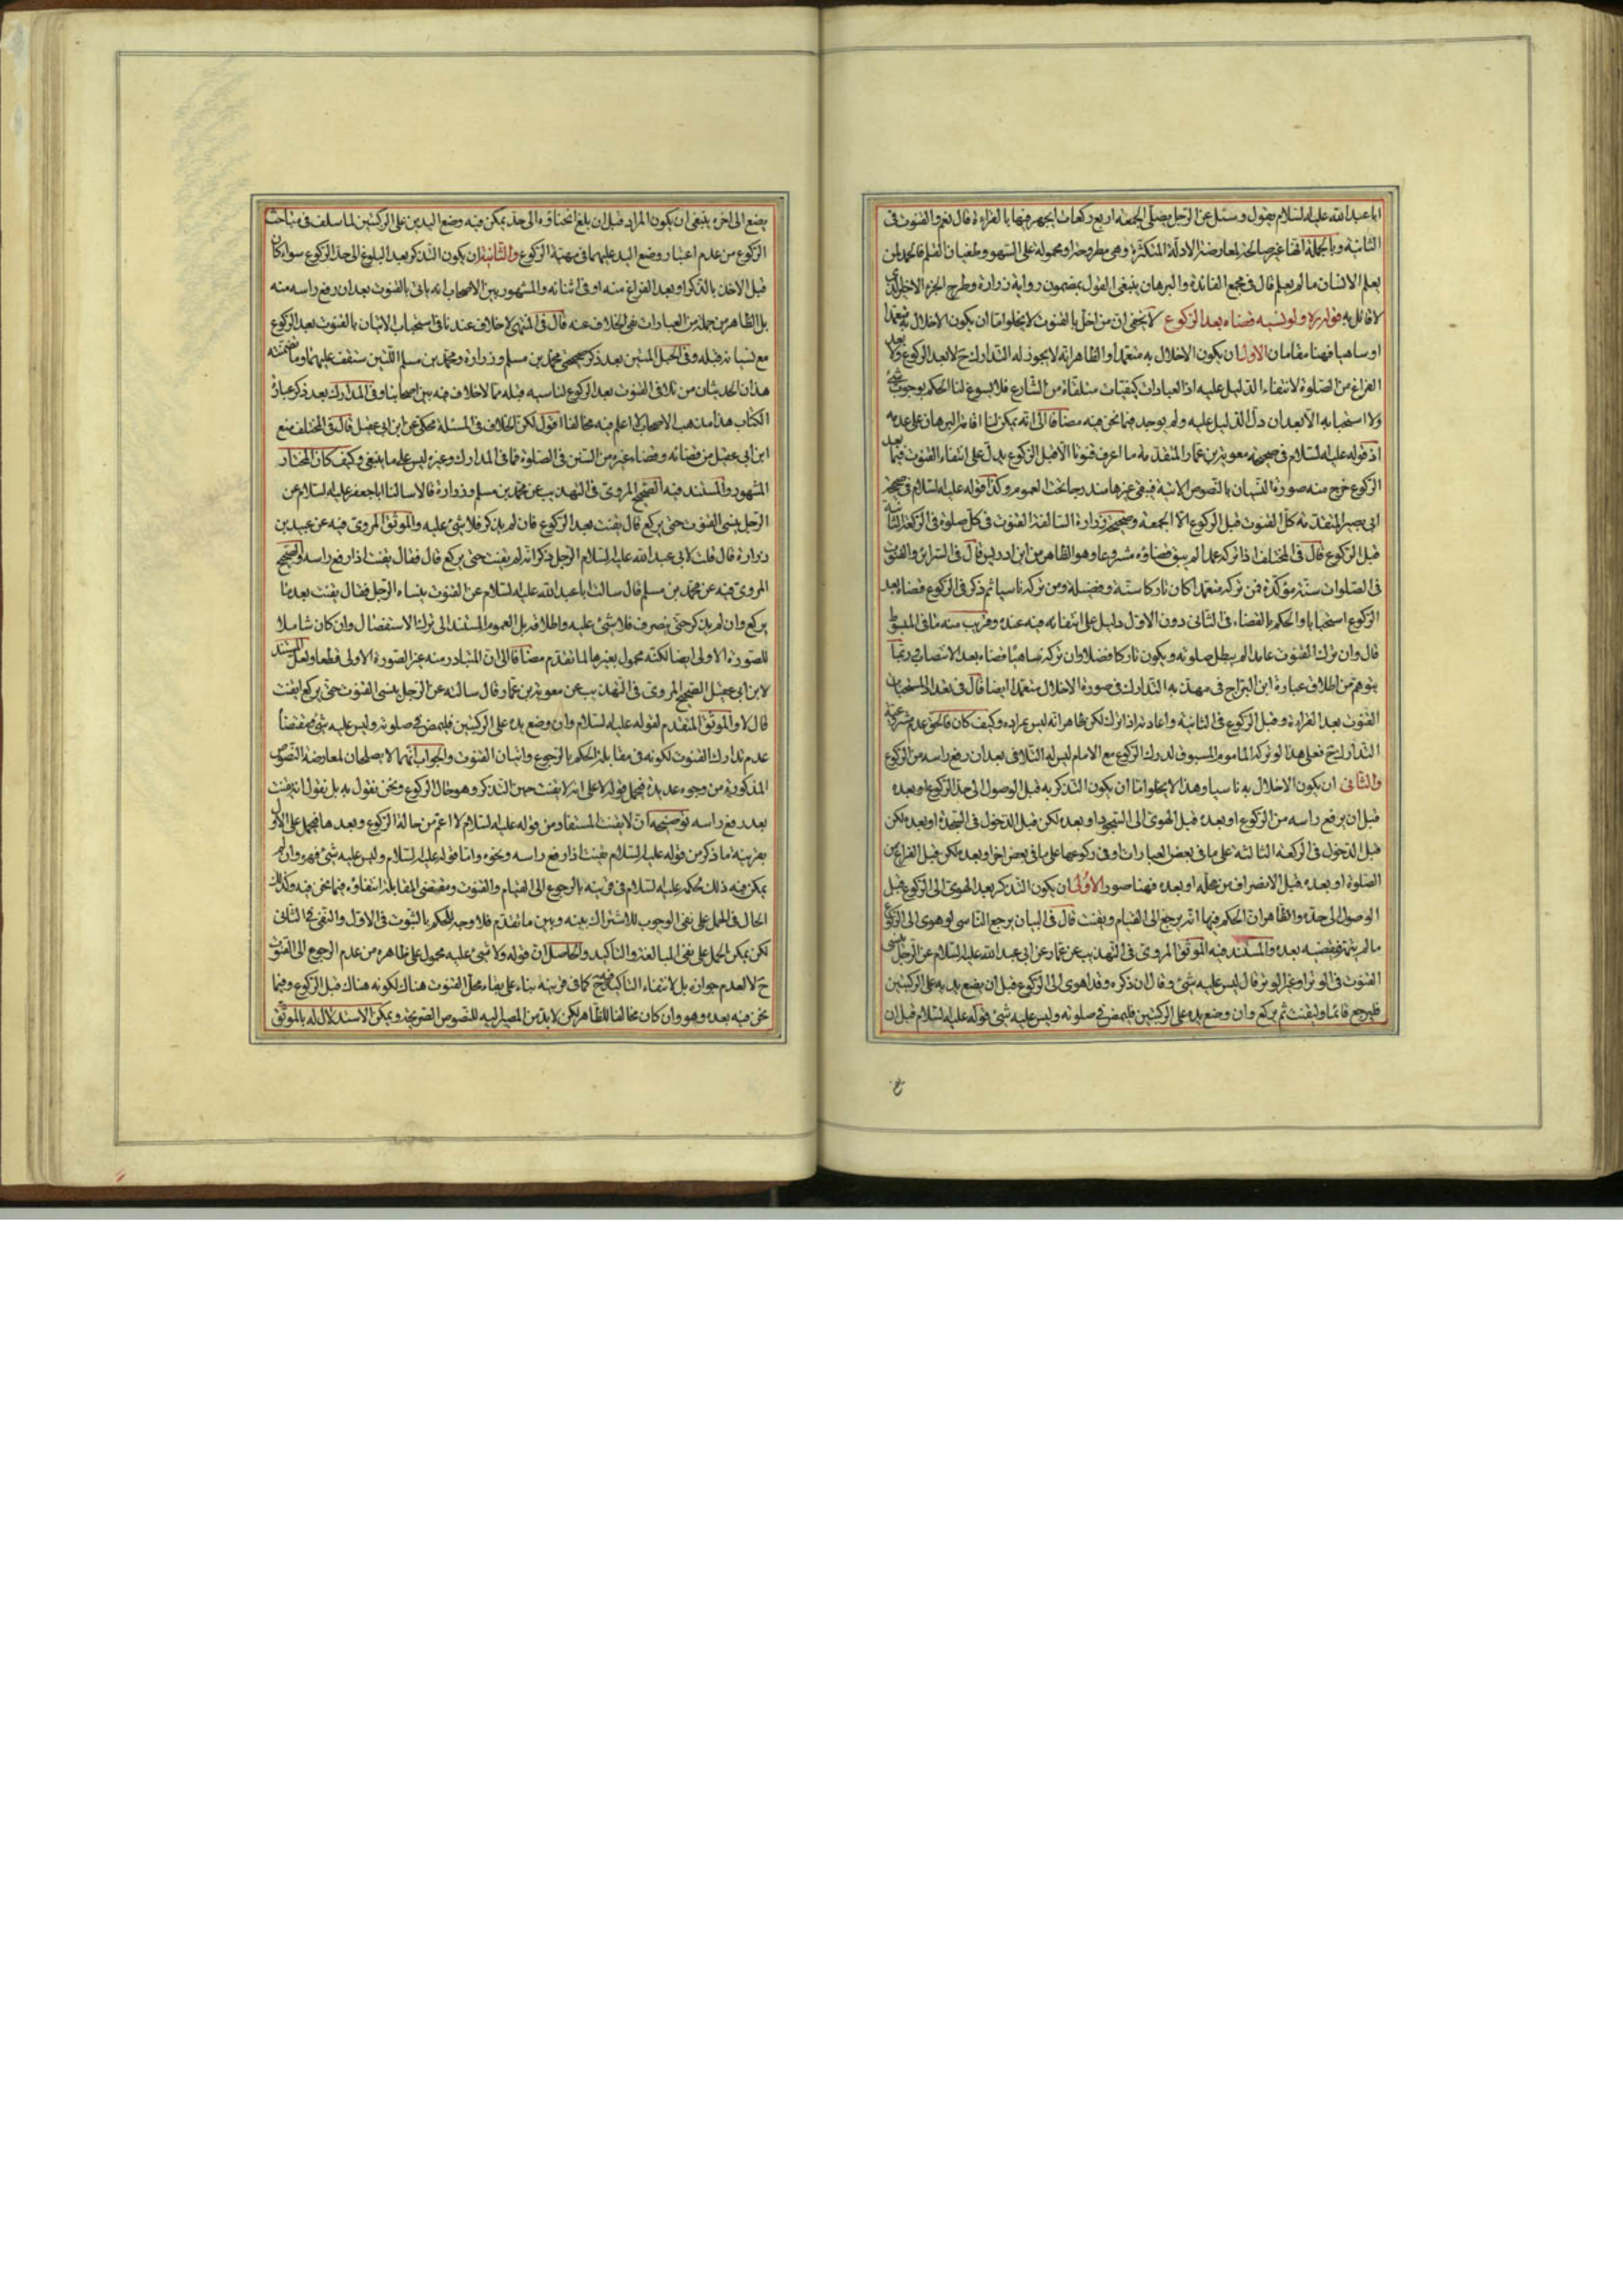 ابا عبد الله عليه السلام يقول وسئل عن الرجل يصلى الجمعة اربع ركعات ايجهر فيها بالقراءة قال نعم والقنوت فى
الثانية وبالجملة انها غير صالحة لمعارضة الادلة المتكثرة وهى مطروحة او محمولة على السهو وطغيان القلم فالحمد لمن
يعلم الانسان ما لم يعلم قال فى مجمع الفائدة والبرهان ينبغى القول بمضمون رواية زرارة وطرح الجزء الاخير الذى
لا قائل به قوله ره ولو نسيه قضاه بعد الركوع لا يخفى ان من اخل بالقنوت لا يخلو اما ان يكون الاخلال به متعمدا
او ساهيا فهنا مقامان الاول ان يكون الاخلال به متعمدا والظاهر انه لا يجوز له التدارك ح لا بعد الركوع ولا بعد
الفراغ من الصلوة لانتفاء الدليل عليه اذ العبادات كيفيات متلقاة من الشارع فلا يسوغ لنا الحكم بوجوب شئ
ولا استحبابه الا بعد ان دل الدليل عليه ولم يوجد فيما نحن فيه مضافا الى انه يمكن لنا اقامة البرهان على عدمه
اذ قوله عليه السلام فى صحيحة معوية بن عمار المتقدمة ما اعرف قنوتا الا قبل الركوع يدل على انتفاء القنوت فيما بعد
الركوع خرج منه صورة النسيان بالنصوص الاتية فيبقى غيرها مندرجا تحت العموم وكذا قوله عليه السلام فى صحيحة
ابى بصير المتقدمة كل القنوت قبل الركوع الا الجمعة وصحيحة زرارة السالفة القنوت فى كل صلوة فى الركعة الثانية
قبل الركوع قال فى المختلف اذا تركه عمدا لم يبق قضاؤه مشروعا وهو الظاهر من ابن ادريس قال فى السرائر والقنوت
فى الصلوات سنة مؤكدة فمن تركه متعمدا كان تاركا سنة وفضيلة ومن تركه ناسيا ثم ذكر فى الركوع قضاه بعد
الركوع استحبابا والحكم بالقضاء فى الثانى دون الاول دليل على انتفائه فيه عنده وقريب منه ما فى المبسوط
قال وان ترك القنوت عامدا لم يبطل صلوته ويكون تاركا فضلا وان تركه ساهيا قضاه بعد الانتصاب وربما
يتوهم من اطلاق عبارة ابن البراج فى مهذبه التدارك فى صورة الاخلال متعمدا ايضا قال فى تعداد المستحبات
القنوت بعد القراءة وقبل الركوع فى الثانية واعادته اذا ترك لكن ظاهر انه ليس بمراده وكيف كان فالحق عدم شرعية
التدارك ح فعلى هذا لو تركه الماموم المسبوق لدرك الركوع مع الامام ليس له التلافى بعد ان رفع راسه من الركوع
والثانى ان يكون الاخلال به ناسيا وهذا لا يخلو اما ان يكون التذكر به قبل الوصول الى حد الركوع او بعده
قبل ان يرفع راسه من الركوع او بعده قبل الهوى الى السجود او بعده لكن قبل الدخول فى السجدة او بعده لكن
قبل الدخول فى الركعة الثالثة على ما فى بعض العبارات او فى ركوعها على ما فى بعض اخر او بعده لكن قبل الفراغ من
الصلوة او بعده قبل الانصراف من محله او بعده فهنا صور الاولى ان يكون التذكر بعد الهوى الى الركوع قبل
الوصول الى حده والظاهر ان الحكم فيها انه يرجع الى القيام ويقنت قال فى البيان يرجع الناسى لو هوى الى الركوع
ما لم يتم فيقضيه بعده والمستند فيه الموثق المروى فى التهذيب عن عمار عن ابى عبد الله عليه السلام عن الرجل ينسى
القنوت فى الوتر او غير الوتر قال ليس عليه شئ وقال ان ذكره وقد اهوى الى الركوع قبل ان يضع يديه على الركبتين
فليرجع قائما وليقنت ثم يركع وان وضع يده على الركبتين فليمض فى صلوته وليس عليه شئ قوله عليه السلام قبل ان
يضع الى اخره ينبغى ان يكون المراد قبل ان بلغ انحناؤه الى حد يمكن فيه وضع اليدين على الركبتين لما سلف فى مباحث
الركوع من عدم اعتبار وضع اليد عليهما فى مهية الركوع والثانية ان يكون التذكر بعد البلوغ الى حد الركوع سواء كان
قبل الاخذ بالذكر او بعد الفراغ منه او فى اثنائه والمشهور بين الاصحاب انه ياتى بالقنوت بعد ان رفع راسه منه
بل الظاهر من جملة من العبارات نفى الخلاف عنه قال فى المنتهى لا خلاف عندنا فى استحباب الاتيان بالقنوت بعد الركوع
مع نسيانه قبله وفى الحبل المتين بعد ذكر صحيحى محمد بن مسلم وزرارة ومحمد بن مسلم اللتين ستقف عليهما وما تضمنه
هذان الحديثان من تلافى القنوت بعد الركوع لناسيه قبله مما لا خلاف فيه بين اصحابنا وفى المدارك بعد ذكر عبارة
الكتاب هذا مذهب الاصحاب لا اعلم فيه مخالفا اقول لكن الخلاف فى المسئلة محكى عن ابن ابى عقيل قال فى المختلف منع
ابن ابى عقيل من قضائه وقضاء غيره من السنن فى الصلوة فما فى المدارك وغيره ليس على ما ينبغى وكيف كان المختار
المشهور والمستند فيه الصحيح المروى فى التهذيب عن محمد بن مسلم وزرارة قالا سالنا ابا جعفر عليه السلام عن
الرجل ينسى القنوت حتى يركع قال يقنت بعد الركوع فان لم يذكر فلا شئ عليه والموثق المروى فيه عن عبيد بن
زرارة قال قلت لابى عبد الله عليه السلام الرجل ذكر انه لم يقنت حتى يركع قال فقال يقنت اذا رفع راسه والصحيح
المروى فيه عن محمد بن مسلم قال سالت ابا عبد الله عليه السلام عن القنوت ينساه الرجل فقال يقنت بعد ما
يركع وان لم يذكر حتى ينصرف فلا شئ عليه واطلاقه بل العموم المستند الى ترك الاستفصال وان كان شاملا
للصورة الاولى ايضا لكنه محمول بغيرها لما تقدم مضافا الى ان المتبادر منه غير الصورة الاولى قطعا ولعل المستند
لابن ابى عقيل الصحيح المروى فى التهذيب عن معوية بن عمار قال سالته عن الرجل ينسى القنوت حتى يركع ايقنت
قال لا والموثق المتقدم لقوله عليه السلام وان وضع يده على الركبتين فليمض فى صلوته وليس عليه شئ
عدم تدارك القنوت لكونه فى مقابلة الحكم بالرجوع واتيان القنوت والجواب انهما لا يصلحان لمعارضة النصوص
المذكورة من وجوه عديدة فيحمل قوله لا على انه لا يقنت حين التذكر وهو حال الركوع ونحن نقول به بل نقول انه يقنت
بعد رفع راسه توضيحه ان لا يقنت المستفاد من قوله عليه السلام لا اعم من حالة الركوع وبعدها فيحمل على الاول
بقرينة ما ذكر من قوله عليه السلام يقنت اذا رفع راسه ونحوه واما قوله عليه السلام وليس عليه شئ فهو وان لم
يمكن فيه ذلك لحكمه عليه السلام فى قرينه بالرجوع الى القيام والقنوت ومقتضى المقابلة انتفاؤه فيما نحن فيه وكذلك
الحال فى الحمل على نفى الوجوب للاشتراك بينه وبين ما تقدم فلا وجه للحكم بالثبوت فى الاول والنفى فى الثانى
لكن يمكن الحمل على نفى المبالغة والتاكيد والحاصل ان قوله ولا شئ عليه محمول على ظاهره من عدم الرجوع الى القنوت
ح لا لعدم جوازه بل لانتفاء التاكيد فيه ح كما فى قرينه بناء على بقاء محل القنوت هناك لكونه هناك قبل الركوع وفيما
نحن فيه بعده وهو وان كان مخالفا للظاهر لكن لا بد من المصير اليه للنصوص الصريحة ويمكن الاستدلال له بالموثق